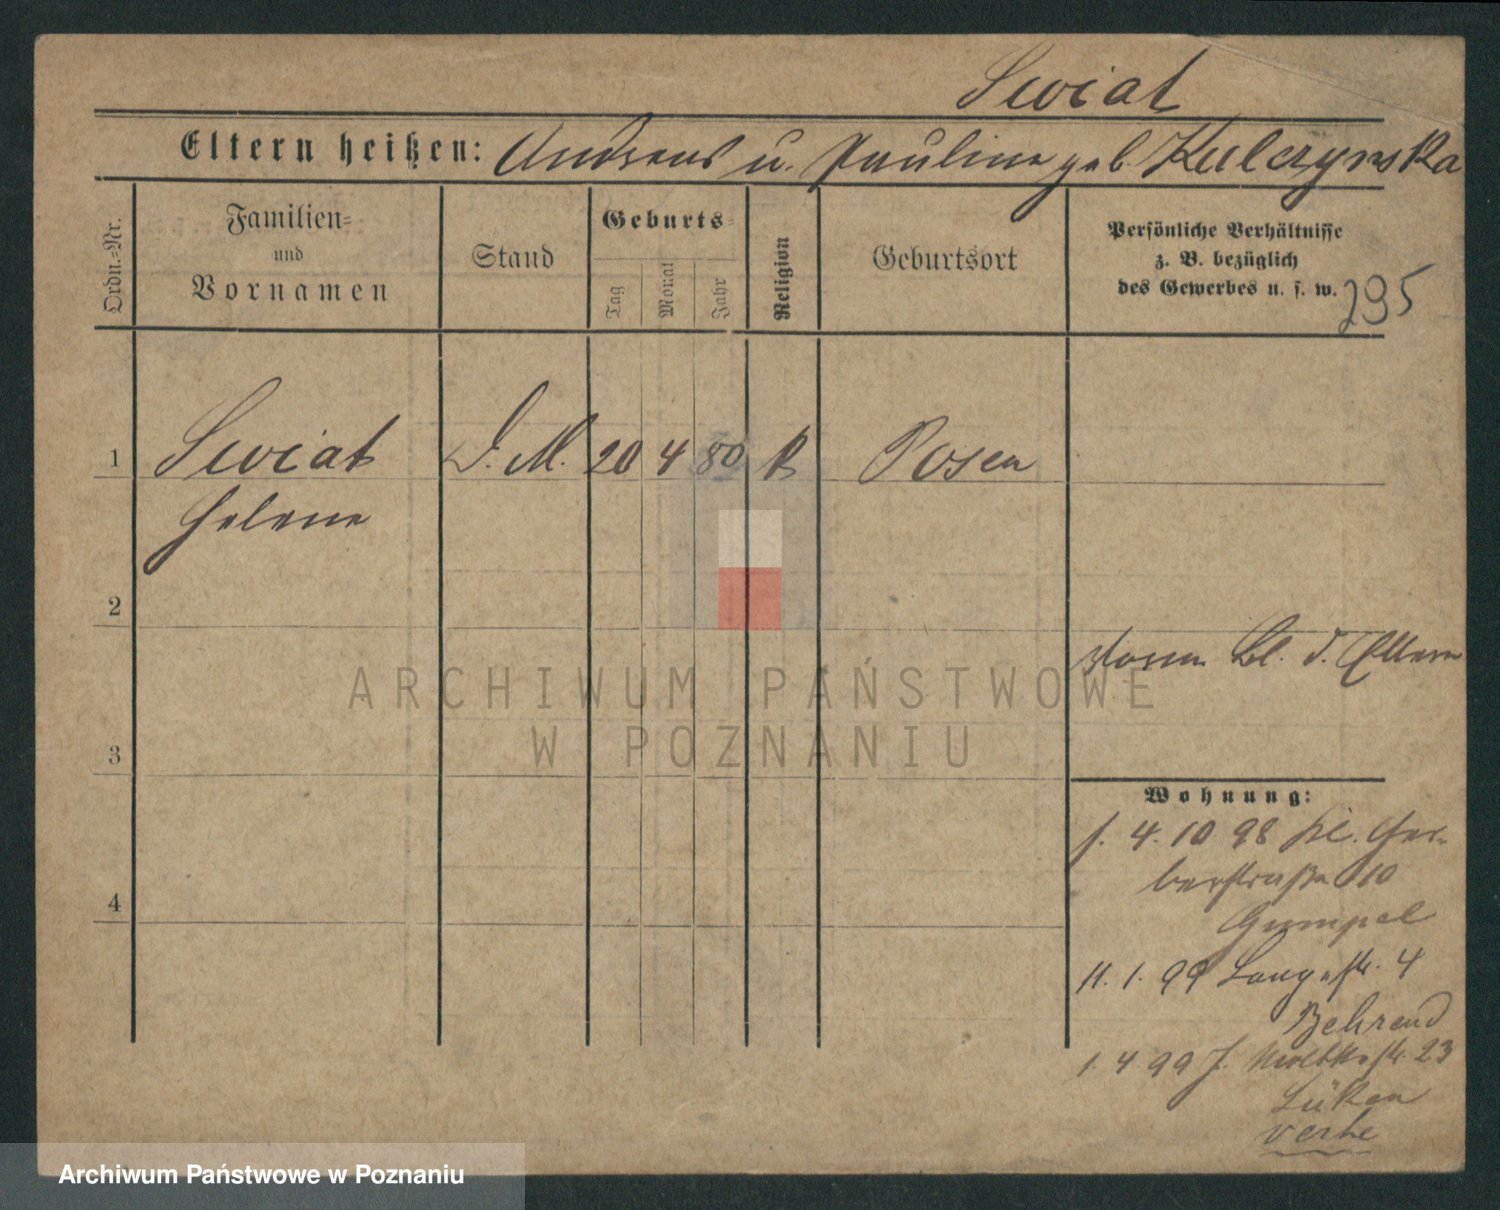 Swiat
Eltern heißen: Andreas u. Pauline geb. Kulczynska
Ordn.-Nr.
Familien-
und
Vornamen
Stand
Geburts-
Tag
Monat
Jahr
Religion
Geburtsort
Persönliche Verhältnisse
z. B. bezüglich
des Gewerbes u. s. w.
295
1 Swiat D. M. 20 4 80 K Posen
Helene
2
vorm Bl. d. Eltern
ARCHIWUM PAŃSTWOWE
W POZNANIU
3
Wohnung:
f. 4. 10 98 Kl. Ger-
berstraße 10
Gumpel
4
11. 1. 99 Langestr. 4
Behrend
1 4 99 J. Moltkestr. 23
Lüken
Archiwum Państwowe w Poznaniu